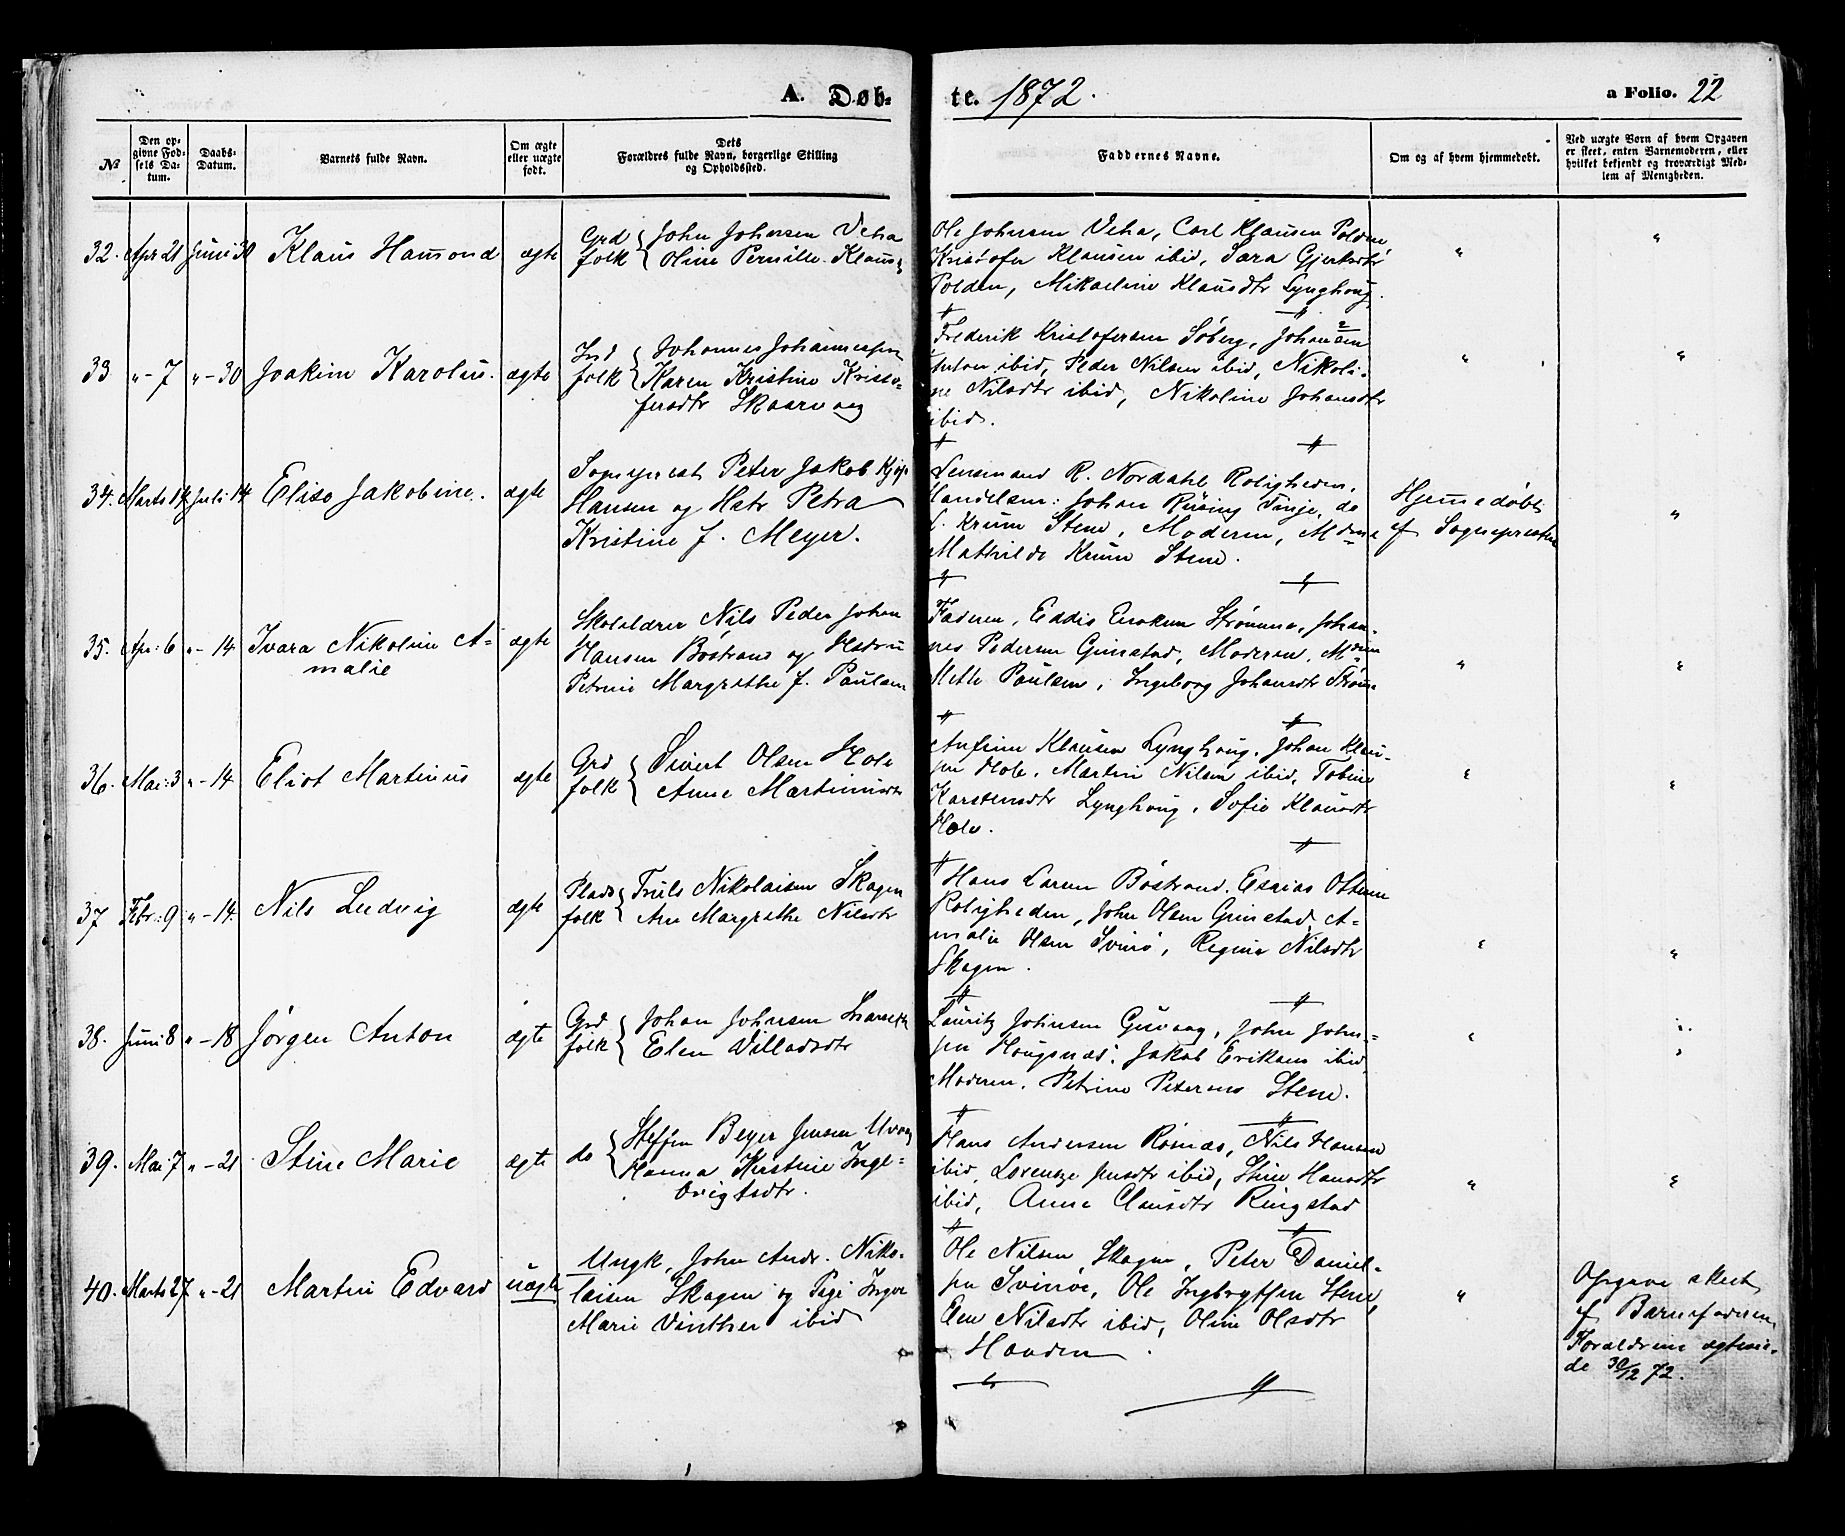 A. Døb-
te. 1872.
a Folio. 22
No
Den op-
givne Fød-
sels Da-
tum.
Daabs-
Datum.
Barnets fulde Navn.
Om ægte
eller uægte
født.
Dets
Forældres fulde Navn, borgerlige Stilling
og Opholdssted.
Faddernes Navne.
Om og af hvem hjemmedøbt.
Ved uægte Børn af hvem Opgaven
er skeet, enten Barnemoderen, eller
hvilket bekjendt og troværdigt Med-
lem af Menigheden.
32. Apr 21 Juni 30 Klaus Hamond ægte
Grd folk John Johnsen Veha
Oline Pernille Klausd
Ole Johnsen Veha, Carl Klausen Polden,
Kristofer Klausen ibid, Sara Gjertsdtr
Polden, Mikaeline Klausdtr Lynghoug.
" "
33 "-7 "-30 Joakim Karolus. ægte
Ind folk Johannes Johannessen
Karen Kristine Kristo-
fersdtr Skaarvaag
Frederik Kristofersen Soberg, Johansen
Anton ibid, Peder Nilsen ibid, Nikoli-
ne Nilsdtr ibid, Nikoline Johansdtr
ibid.
" "
34. Marts 14 Juli 14 Elise Jakobine. ægte
Sogneprest Peter Jakob
Hansen og Hstr Petra
Kristine f. Meyer.
Lensmand R. Nordahl Roligheden,
Handelsm: Johan Rüsing Tinje, do
L. Krum Stene, Moderen, Mdme
Mathilde Krum Stene.
Hjemmedøbt
af Sognepresten
"
35. Apr: 6 "-14 Ivara Nikoline A-
malie
ægte
Skolelærer Nils Peder Johan
Hansen Bøstrand og Hstru
Petrine Margrethe f. Paulsen
Faderen, Eddis Enoksen Strømme, Johan-
nes Pedersen Grimstad, Moderen, Mdme
Mette Paulsen, Ingeborg Johansdtr Strøm
" "
36. Mai: 3 "-14. Eliot Martinus ægte
Grd folk Sivert Olsen Hole
Anne Martinusdtr
Anfinn Klausen Lynghoug, Johan Klau-
sen Hole, Martin Nilsen ibid, Tobine
Karstensdtr Lynghoug, Sofie Klausdtr
Hole.
" "
37 Febr: 9 "-14. Nils Ludvig ægte
Plads folk Truls Nikolaisen Skagen
Ane Margrethe Nilsdtr
Hans Larsen Bøstrand, Esaias Ottesen
Roligheden, John Olsen Grimstad, A-
malie Olsen Svinø, Regine Nilsdtr
Skagen.
" "
38. Juni 8 "-18 Jørgen Anton ægte
Grd folk Johan Johnsen
Elen Villadsdtr
Lauritz Johnsen Guvaag, John John-
sen Hougsnæs, Jakob Eriksen ibid
Moderen, Petrine Petersens Stene.
"
39. Mai 7 "-21 Stine Marie ægte
do Steffen Beyer Jensen Uvaag
Hanna Kirstine Inge-
brigtsdtr.
Hans Andersen Rosnæs, Nils Hansen
ibid, Lorentze Jensdtr ibid, Stine Hansdtr
ibid, Anna Clausdtr Ringstad
" "
40. Marts 27 "-21 Martin Edvard uægte
Ungk, John Andr. Niko-
laisen Skagen og Pige Inger
Marie Vinther ibid
Ole Nilsen Skagen, Peter Daniel-
sen Svinøe, Ole Ingbrigtsen Stene,
Elen Nilsdtr ibid, Oline Olsdtr
Hovden.
"
Opgave skeet
af Barnefaderen.
Forældrene ægtevie-
de 30/12 72.